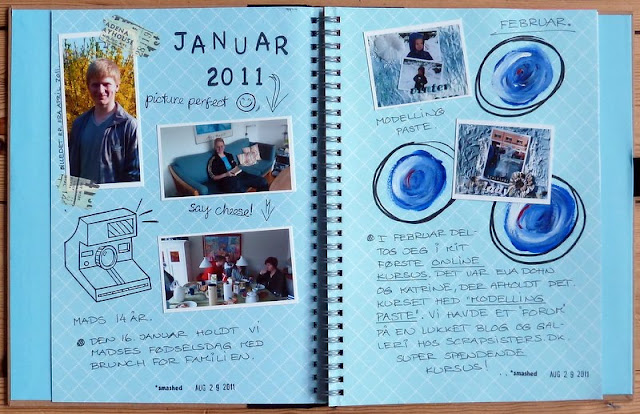 ADENA
AYHOUSE
JANUAR
2011
picture perfect
BILLEDET ER FRA APRIL 2011
say cheese!
MADS 14 ÅR.
DEN 16. JANUAR HOLDT VI
MADSES FØDSELSDAG MED
BRUNCH FOR FAMILIEN.
*smashed AUG 29 2011
FEBRUAR.
MODELLING
PASTE.
I FEBRUAR DEL-
TOG JEG I MIT
FØRSTE ONLINE
KURSUS. DET VAR EVA DOHN
OG KATRINE, DER AFHOLDT DET.
KURSET MED "MODELLING
PASTE". VI HAVDE ET "FORUM"
PÅ EN LUKKET BLOG OG GAL-
LERI HOS SCRAPSISTERS.DK.
SUPER SPÆNDENDE
KURSUS!
*smashed AUG 29 2011